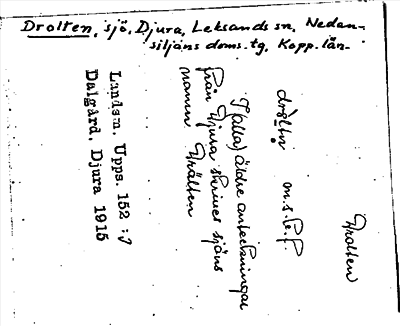 Drolten, sjö, Djura, Leksands sn, Nedan-
siljans doms. tg, Kopp. län.
Drolten
m. s. b. f.
I (alla) äldre anteckningar
från Djura skrives sjöns
namn Drålten
Landsm. Upps. 152 :
Dalgård. Djura 1915